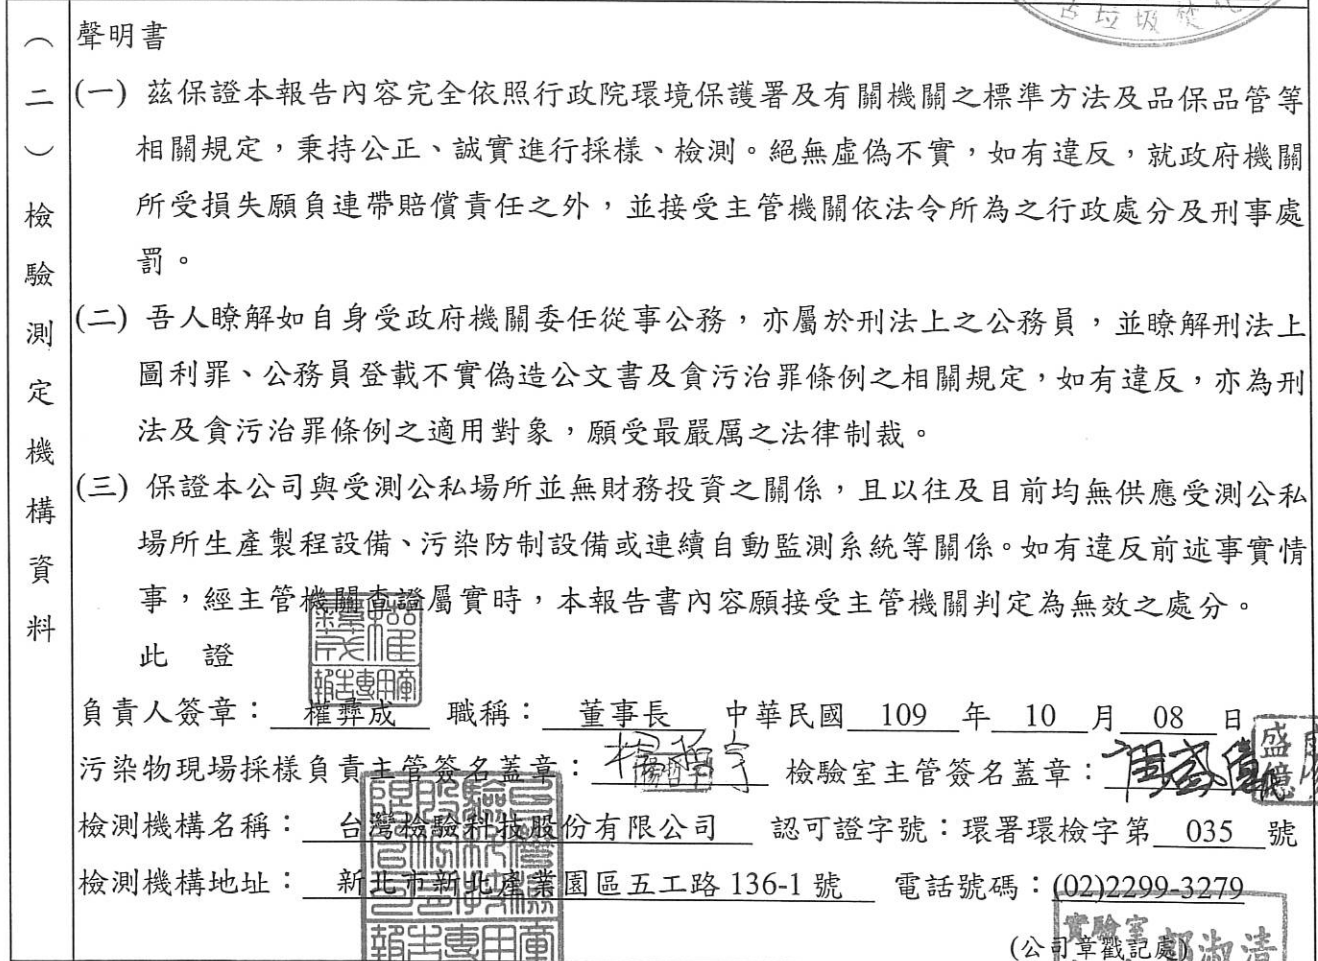 古垃圾焚化
(二)檢驗測定機構資料
聲明書
(一) 茲保證本報告內容完全依照行政院環境保護署及有關機關之標準方法及品保品管等
相關規定，秉持公正、誠實進行採樣、檢測。絕無虛偽不實，如有違反，就政府機關
所受損失願負連帶賠償責任之外，並接受主管機關依法令所為之行政處分及刑事處
罰。
(二) 吾人瞭解如自身受政府機關委任從事公務，亦屬於刑法上之公務員，並瞭解刑法上
圖利罪、公務員登載不實偽造公文書及貪污治罪條例之相關規定，如有違反，亦為刑
法及貪污治罪條例之適用對象，願受最嚴厲之法律制裁。
(三) 保證本公司與受測公私場所並無財務投資之關係，且以往及目前均無供應受測公私
場所生產製程設備、污染防制設備或連續自動監測系統等關係。如有違反前述事實情
事，經主管機關查證屬實時，本報告書內容願接受主管機關判定為無效之處分。
此 證
權彝成
報告專用章
負責人簽章： 權彝成 職稱： 董事長 中華民國 109 年 10 月 08 日
污染物現場採樣負責主管簽名蓋章： 檢驗室主管簽名蓋章： 周盛億
盛億
檢測機構名稱： 台灣檢驗科技股份有限公司 認可證字號：環署環檢字第 035 號
檢測機構地址： 新北市新北產業園區五工路 136-1 號 電話號碼：(02)2299-3279
報告專用章
(公司章戳記處)
實驗室
淑清